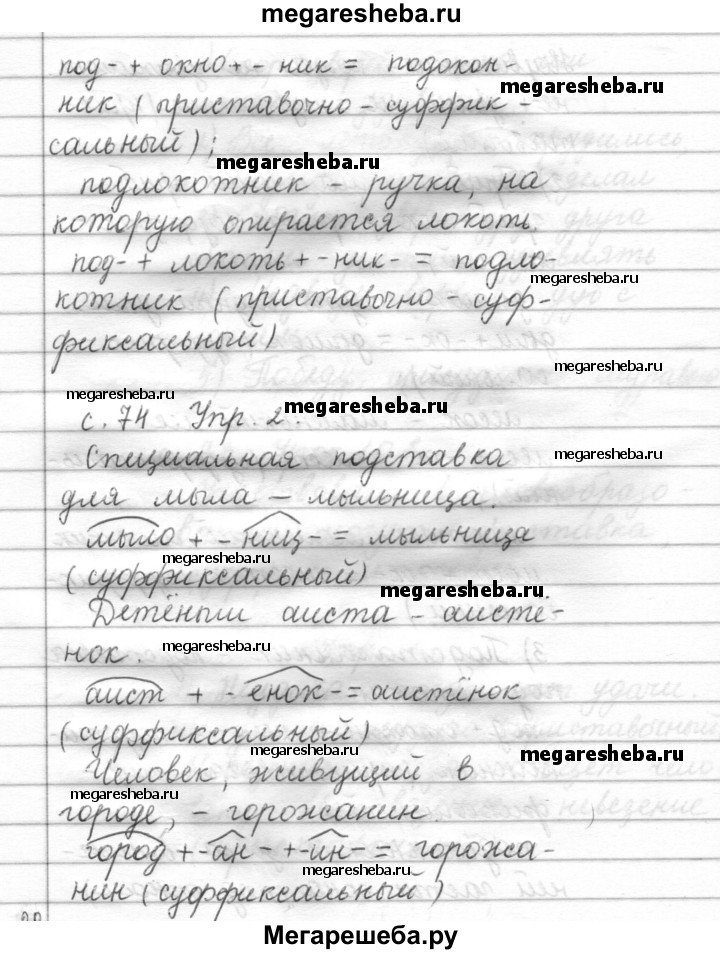 megaresheba.ru
под- + окно + - ник = подокон-
megaresheba.ru
ник (приставочно - суффик -
сальный);
megaresheba.ru
подлокотник - ручка, на
которую опирается локоть.
под- + локоть + -ник- = подло-
megaresheba.ru
котник (приставочно - суф-
фиксальный)
megaresheba.ru
megaresheba.ru
с. 74 Упр. 2.
megaresheba.ru
Специальная подставка
megaresheba.ru
для мыла - мыльница.
мыло + - ниц - = мыльница
megaresheba.ru
(суффиксальный)
megaresheba.ru
Детёныш аиста - аистё-
нок.
megaresheba.ru
аист + - ёнок - = аистёнок
(суффиксальный)
megaresheba.ru
megaresheba.ru
Человек, живущий в
megaresheba.ru
городе, - горожанин.
город + -ан - + -ин- = горожа-
megaresheba.ru
нин (суффиксальный)
Мегарешеба.ру